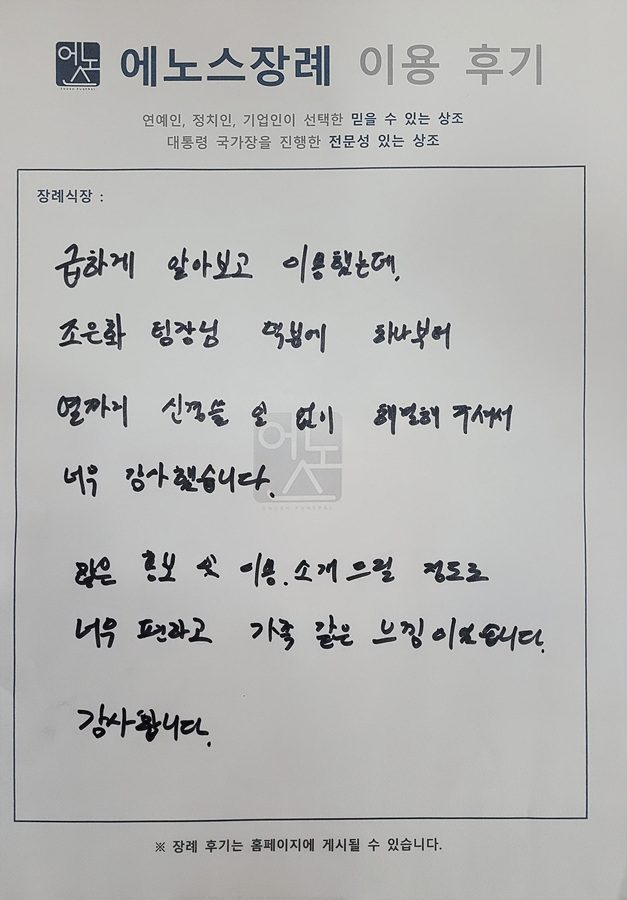 에노스장례 이용 후기
연예인, 정치인, 기업인이 선택한 믿을 수 있는 상조
대통령 국가장을 진행한 전문성 있는 상조
장례식장 :
급하게 알아보고 이용했는데,
조은화 팀장님 덕분에 하나부터
열까지 신경쓸 일 없이 해결해 주셔서
너무 감사했습니다.
많은 홍보 및 이용. 소개 드릴 정도로
너무 편하고 가족 같은 느낌이었습니다.
감사합니다.
※ 장례 후기는 홈페이지에 게시될 수 있습니다.